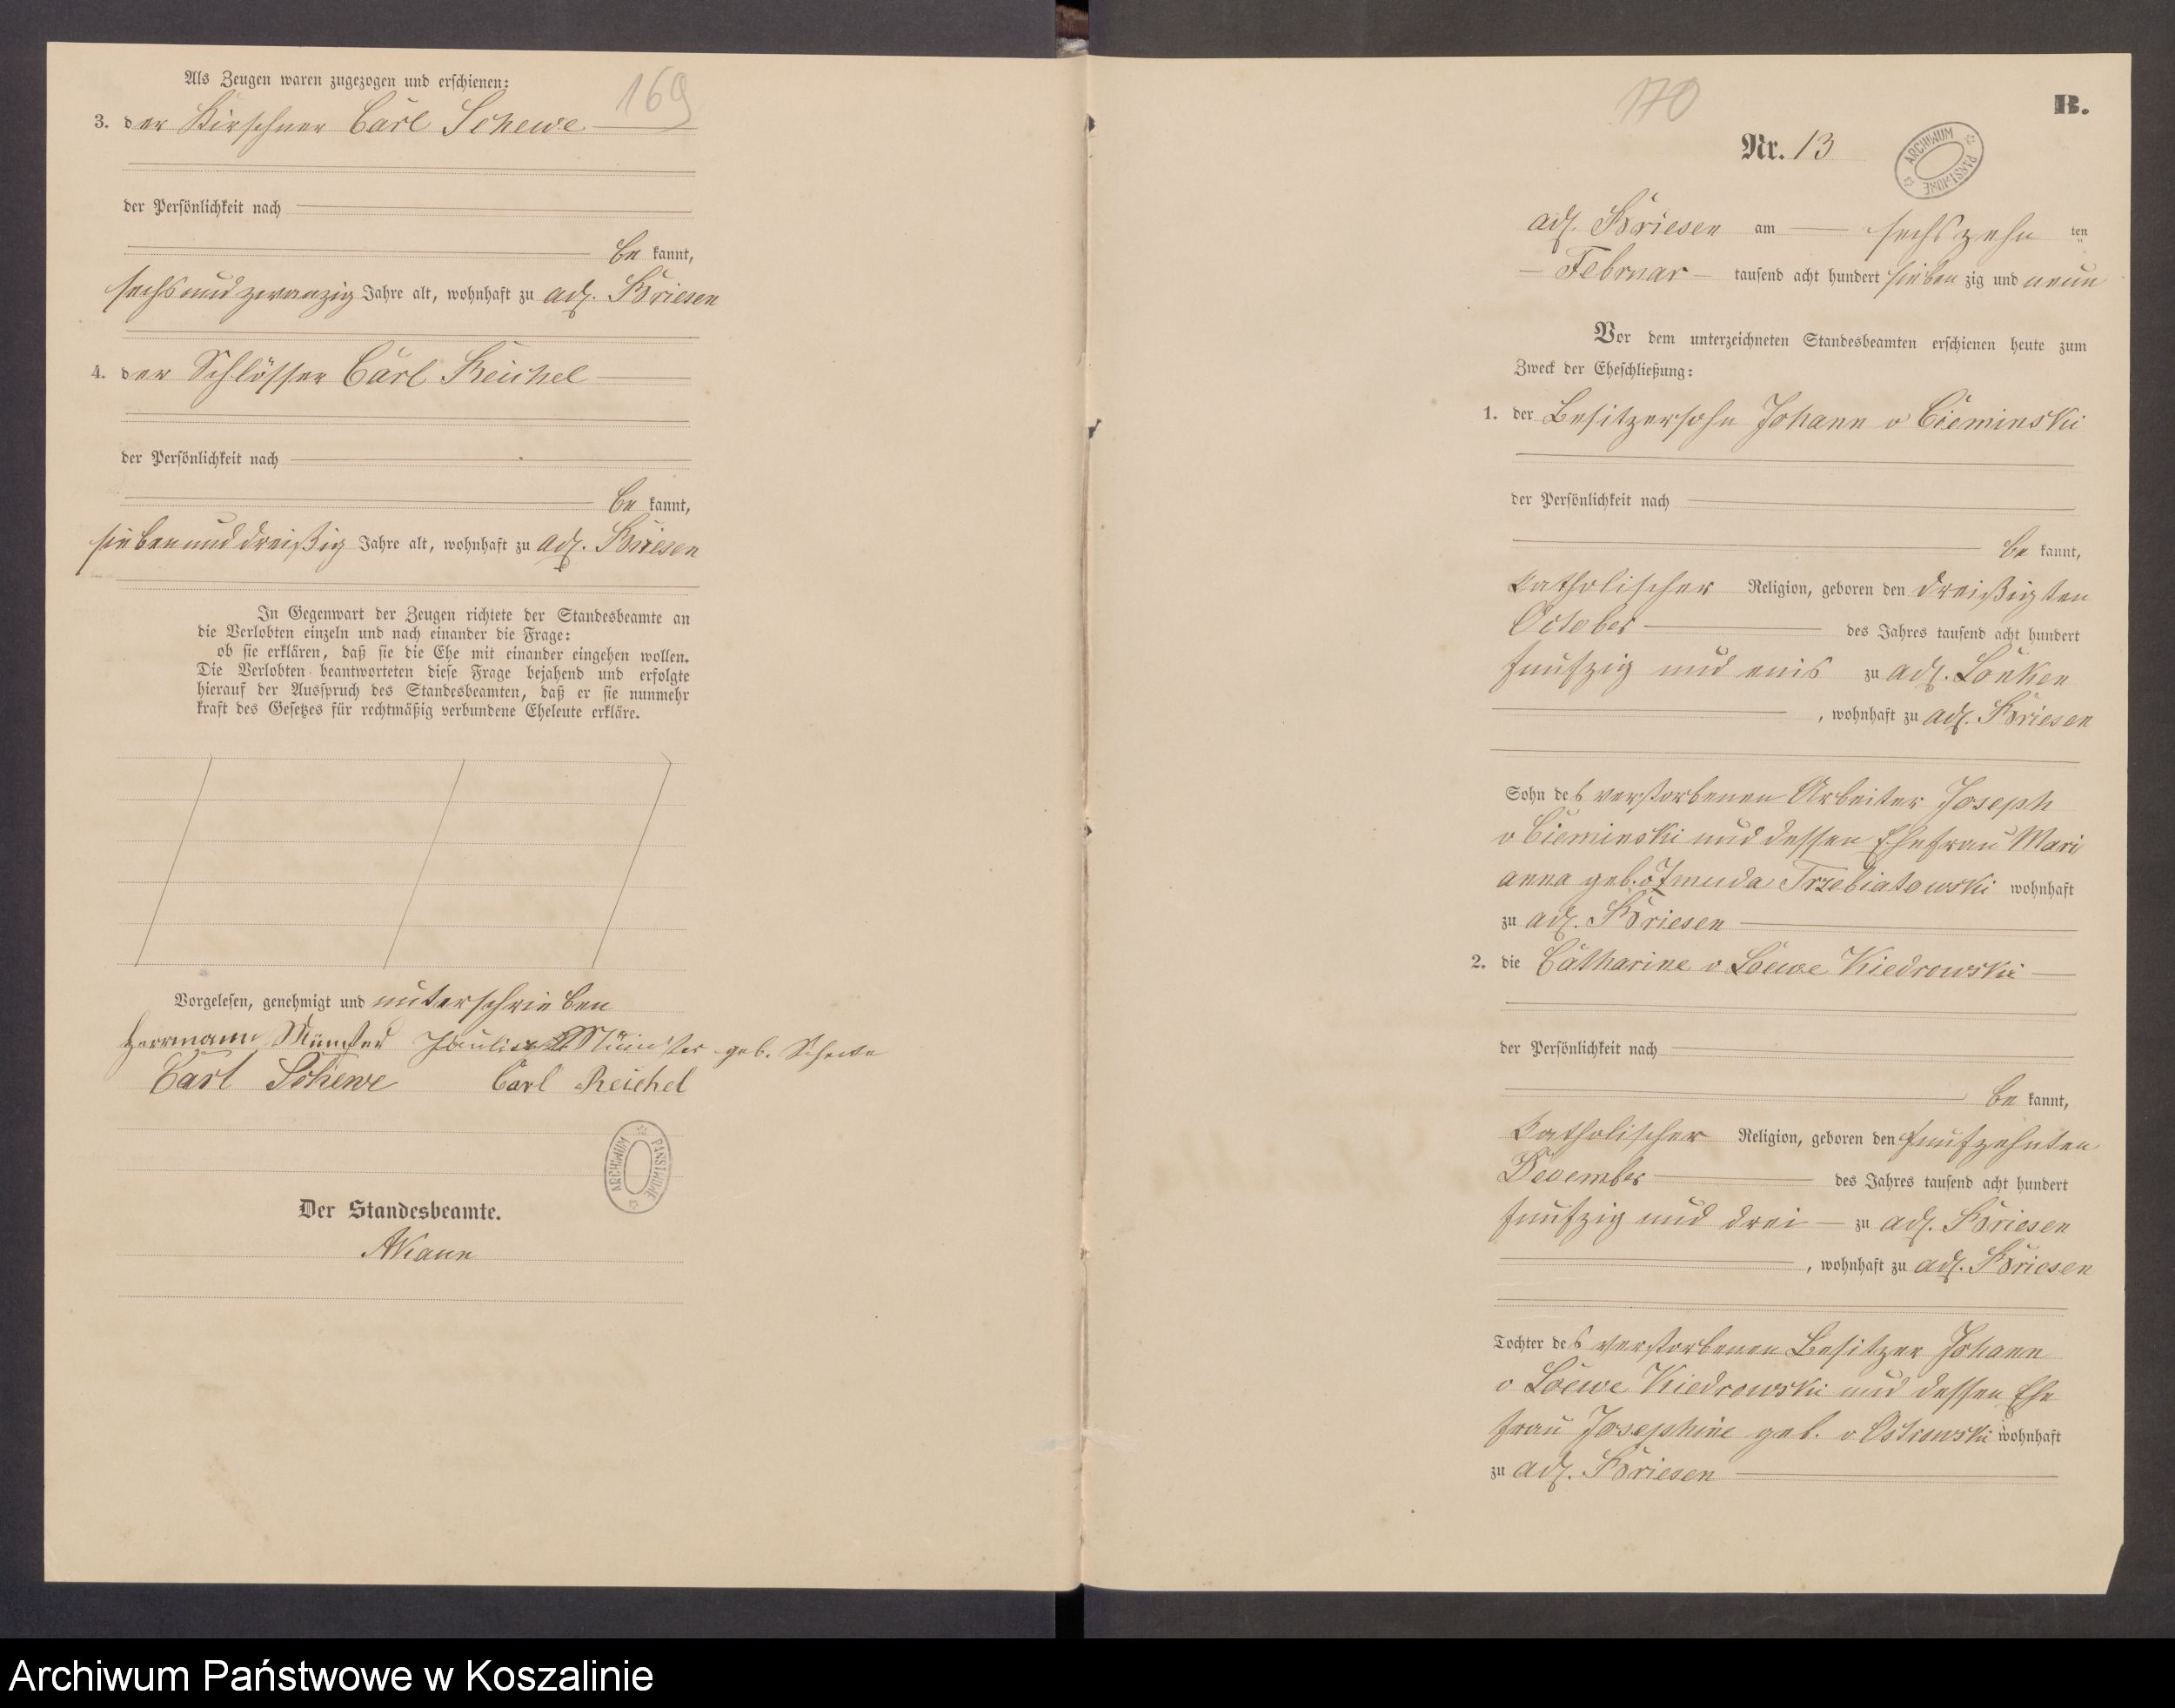 Als Zeugen waren zugezogen und erschienen:
169
3. der Kirschner Carl Schewe
der Persönlichkeit nach
be kannt,
sechsundzwanzig Jahre alt, wohnhaft zu adl. Briesen
4. der Schlösser Carl Reichel
der Persönlichkeit nach
be kannt,
siebenunddreißig Jahre alt, wohnhaft zu adl. Briesen
In Gegenwart der Zeugen richtete der Standesbeamte an
die Verlobten einzeln und nach einander die Frage:
ob sie erklären, daß sie die Ehe mit einander eingehen wollen.
Die Verlobten beantworteten diese Frage bejahend und erfolgte
hierauf der Ausspruch des Standesbeamten, daß er sie nunmehr
kraft des Gesetzes für rechtmäßig verbundene Eheleute erkläre.
Vorgelesen, genehmigt und unterschrieben
Herrmann Münster Pauline Münster geb. Schewe
Carl Schewe Carl Reichel
ARCHIWUM PAŃSTWOWE
Der Standesbeamte.
170
B.
Nr. 13
ARCHIWUM PAŃSTWOWE
adl. Briesen am sechszehn ten
Februar tausend acht hundert sieben zig und neun
Vor dem unterzeichneten Standesbeamten erschienen heute zum
Zweck der Eheschließung:
1. der Besitzersohn Johann v Cieminski
der Persönlichkeit nach
be kannt,
katholischer Religion, geboren den dreißigten
October des Jahres tausend acht hundert
funfzig und eins zu adl. Lonken
, wohnhaft zu adl. Briesen
Sohn des verstorbenen Arbeiter Joseph
v Cieminski und dessen Ehefrau Mari
anna geb. v Zmuda Trzebiatowski wohnhaft
zu adl. Briesen
2. die Catharine v Loewe Kiedrowski
der Persönlichkeit nach
be kannt,
katholischer Religion, geboren den funfzehnten
December des Jahres tausend acht hundert
funfzig und drei zu adl. Briesen
, wohnhaft zu adl. Briesen
Tochter des verstorbenen Besitzer Johann
v Loewe Kiedrowski und dessen Ehe
frau Josephine geb. v Ostrowski wohnhaft
zu adl. Briesen
Archiwum Państwowe w Koszalinie